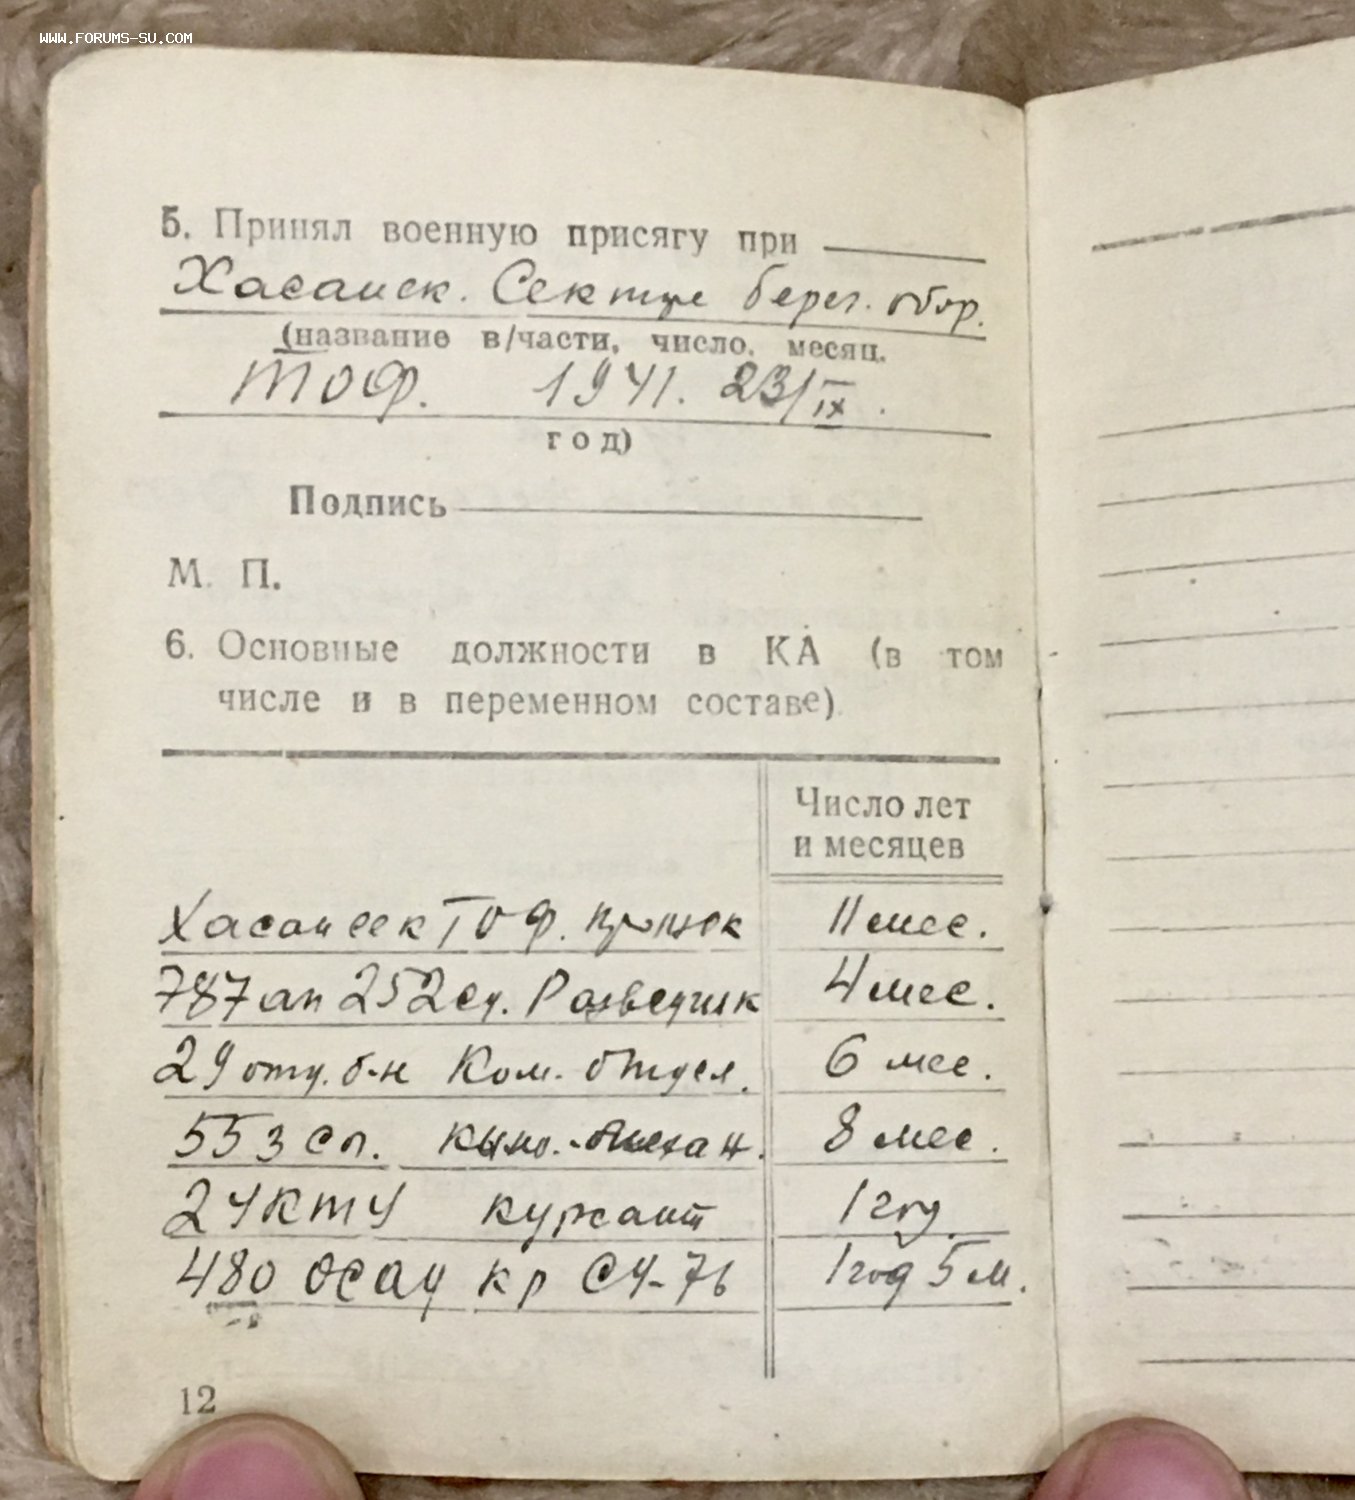 WWW.FORUMS-SU.COM
5. Принял военную присягу при
Хасанск. Секторе берег. обор.
(название в/части, число, месяц,
ТОФ. 1941. 23/IX.
год)
Подпись
М. П.
6. Основные должности в КА (в том
числе и в переменном составе)
Число лет
и месяцев
Хасансек ТОФ. 11 мес.
787 ап 252 сд. Разведчик 4 мес.
29 отд. б-н Ком. Отдел. 6 мес.
553 сп. 8 мес.
2 УКТУ курсант 1 год
480 ОСАД кр СУ-76 1 год 5 м.
12